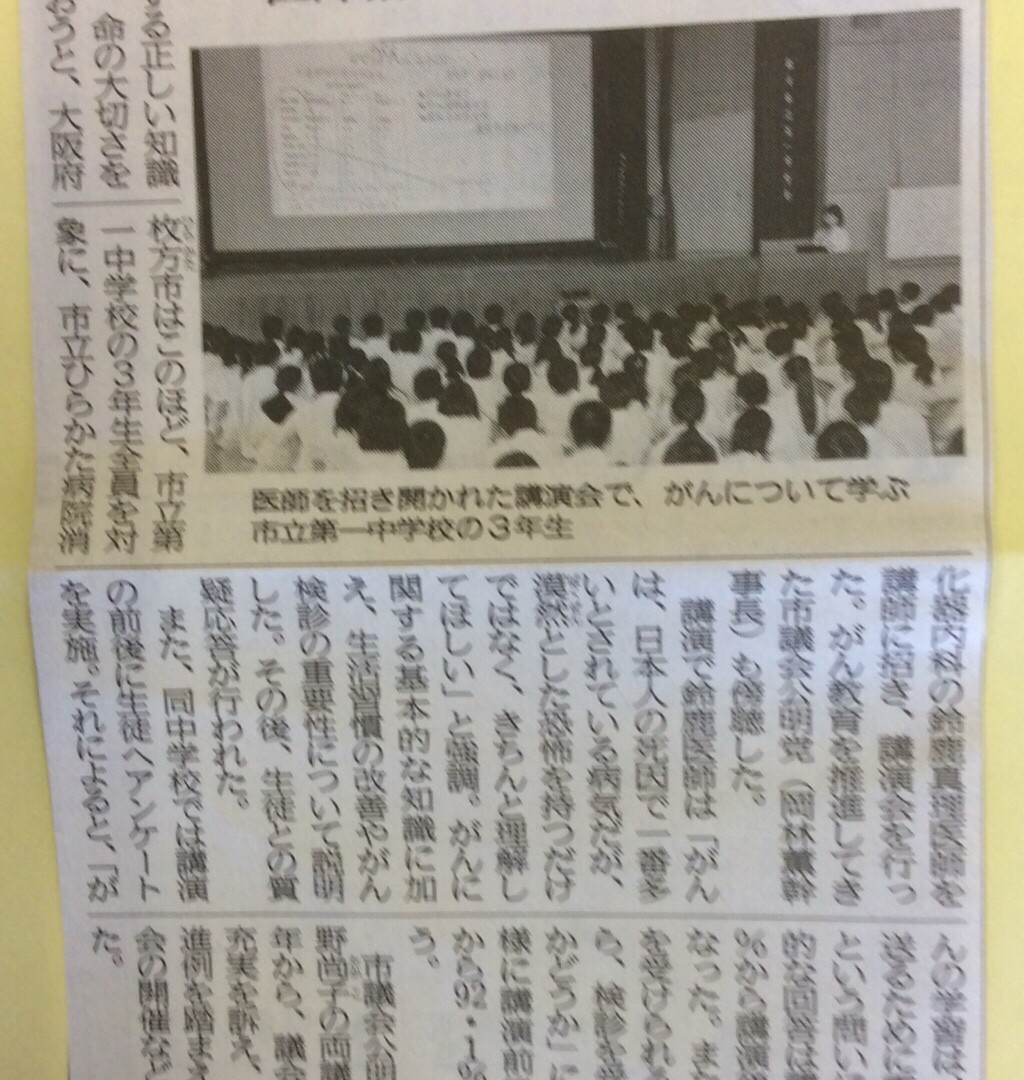 する正しい知識
命の大切さを
おうと、大阪府
枚方市はこのほど、市立第
一中学校の3年生全員を対
象に、市立ひらかた病院消
医師を招き開かれた講演会で、がんについて学ぶ
市立第一中学校の3年生
化器内科の鈴鹿真理医師を
講師に招き、講演会を行っ
た。がん教育を推進してき
た市議会公明党（岡林薫幹
事長）も傍聴した。
講演で鈴鹿医師は「がん
は、日本人の死因で一番多
いとされている病気だが、
漠然とした恐怖を持つだけ
ではなく、きちんと理解し
てほしい」と強調。がんに
関する基本的な知識に加
え、生活習慣の改善やがん
検診の重要性について説明
した。その後、生徒との質
疑応答が行われた。
また、同中学校では講演
の前後に生徒へアンケート
を実施。それによると、「が
んの学習は、
送るために
という問い
的な回答は
%から講演
なった。また
を受けられる
ら、検診を受
かどうか」に
様に講演前
から92・1%
う。
市議会公明
野尚子の両議
年から、議会
充実を訴え、
進例を踏まえ
会の開催など
た。